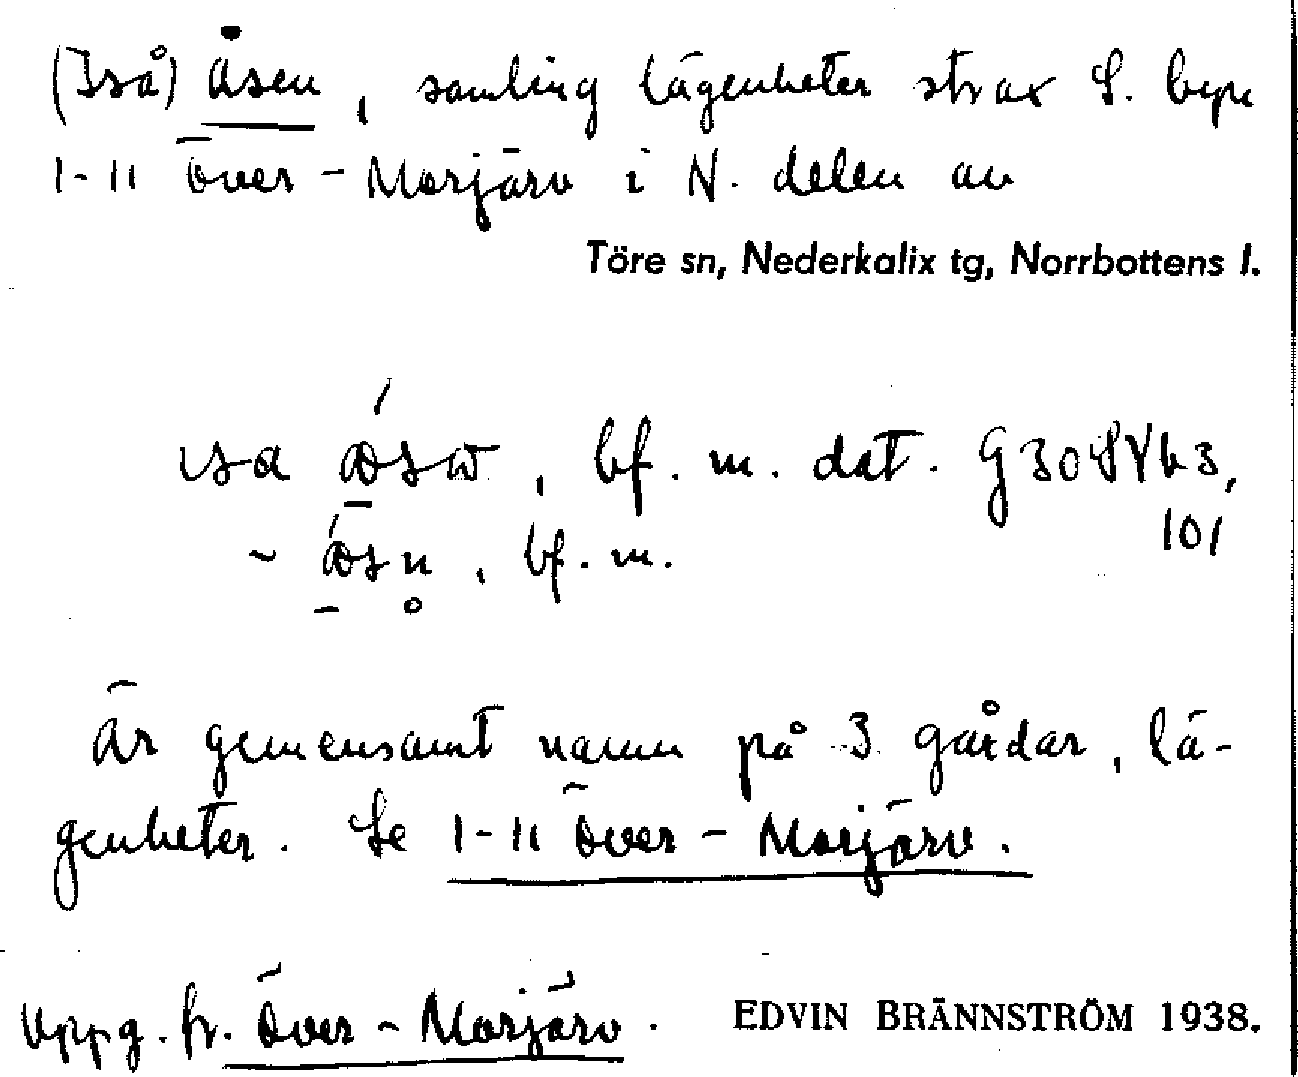 (Iså) Åsen, samling lägenheter strax S. byn
1-11 Över-Morjärv i N. delen av
Töre sn, Nederkalix tg, Norrbottens l.
bf. m. dat. G 30
101
~ bf. m.
Är gemensamt namn på 3 gårdar, lä-
genheter. Se 1-11 Över-Morjärv.
Uppg. fr. Över-Morjärv. EDVIN BRÄNNSTRÖM 1938.